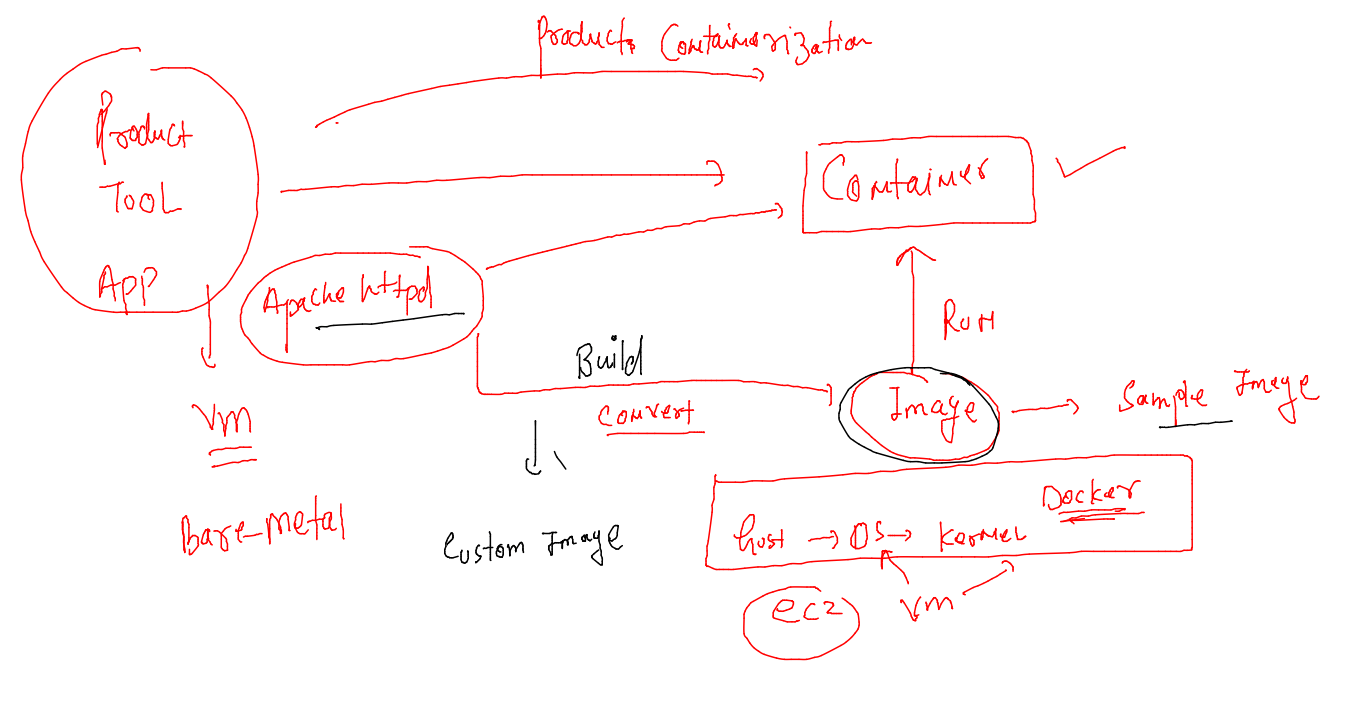 Products Containerization
Product
TOOL
APP
Container
Apache httpd
Run
Build
convert
Image
Sample Image
VM
Bare-Metal
Custom Image
Docker
host → OS → kernel
VM
ec2